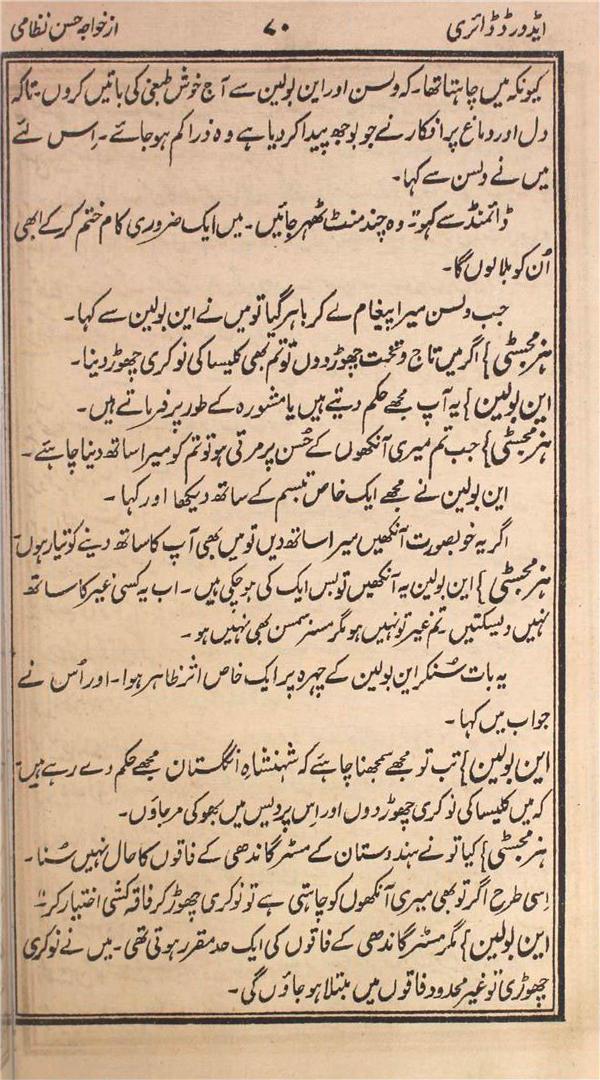 ایڈورڈ ڈائری ۷۰ از خواجہ حسن نظامی
کیونکہ میں چاہتا تھا۔ کہ ولسن اور این بولین سے آج خوش طبعی کی باتیں کروں۔ تاکہ
دل اور دماغ پر افکار نے جو بوجھ پیدا کر دیا ہے وہ ذرا کم ہو جائے۔ اِس لئے
میں نے ولسن سے کہا۔
ڈائمنڈ سے کہو۔ وہ چند منٹ ٹھہر جائیں۔ میں ایک ضروری کام ختم کر کے ابھی
اُن کو بلا لوں گا۔
جب ولسن میرا پیغام لے کر باہر گیا تو میں نے این بولین سے کہا۔
ہز مجسٹی } اگر میں تاج و تخت چھوڑ دوں تو تم بھی کلیسا کی نوکری چھوڑ دینا۔
این بولین } یہ آپ مجھے حکم دیتے ہیں یا مشورہ کے طور پر فرماتے ہیں۔
ہز مجسٹی } جب تم میری آنکھوں کے حُسن پر مرتی ہو تو تم کو میرا ساتھ دینا چاہئے۔
این بولین نے مجھے ایک خاص تبسم کے ساتھ دیکھا اور کہا۔
اگر یہ خوبصورت آنکھیں میرا ساتھ دیں تو میں بھی آپ کا ساتھ دینے کو تیار ہوں۔
ہز مجسٹی } این بولین یہ آنکھیں تو بس ایک کی ہو چکی ہیں۔ اب یہ کسی غیر کا ساتھ
نہیں دیسکتیں۔ تم غیر تو نہیں ہو مگر مسز سمسن بھی نہیں ہو۔
یہ بات سُنکر این بولین کے چہرہ پر ایک خاص اثر ظاہر ہوا۔ اور اُس نے
جواب میں کہا۔
این بولین } تب تو مجھے سمجھنا چاہئے کہ شہنشاہِ انگلستان مجھے حکم دے رہے ہیں۔
کہ میں کلیسا کی نوکری چھوڑ دوں اور اِس پردیس میں بھوکی مر جاؤں۔
ہز مجسٹی } کیا تو نے ہندوستان کے مسٹر گاندھی کے فاقوں کا حال نہیں سُنا۔
اِسی طرح اگر تو بھی میری آنکھوں کو چاہتی ہے تو نوکری چھوڑ کر فاقہ کشی اختیار کر۔
این بولین } مگر مسٹر گاندھی کے فاقوں کی ایک حد مقرر ہوتی تھی۔ میں نے نوکری
چھوڑی تو غیر محدود فاقوں میں مبتلا ہو جاؤں گی۔